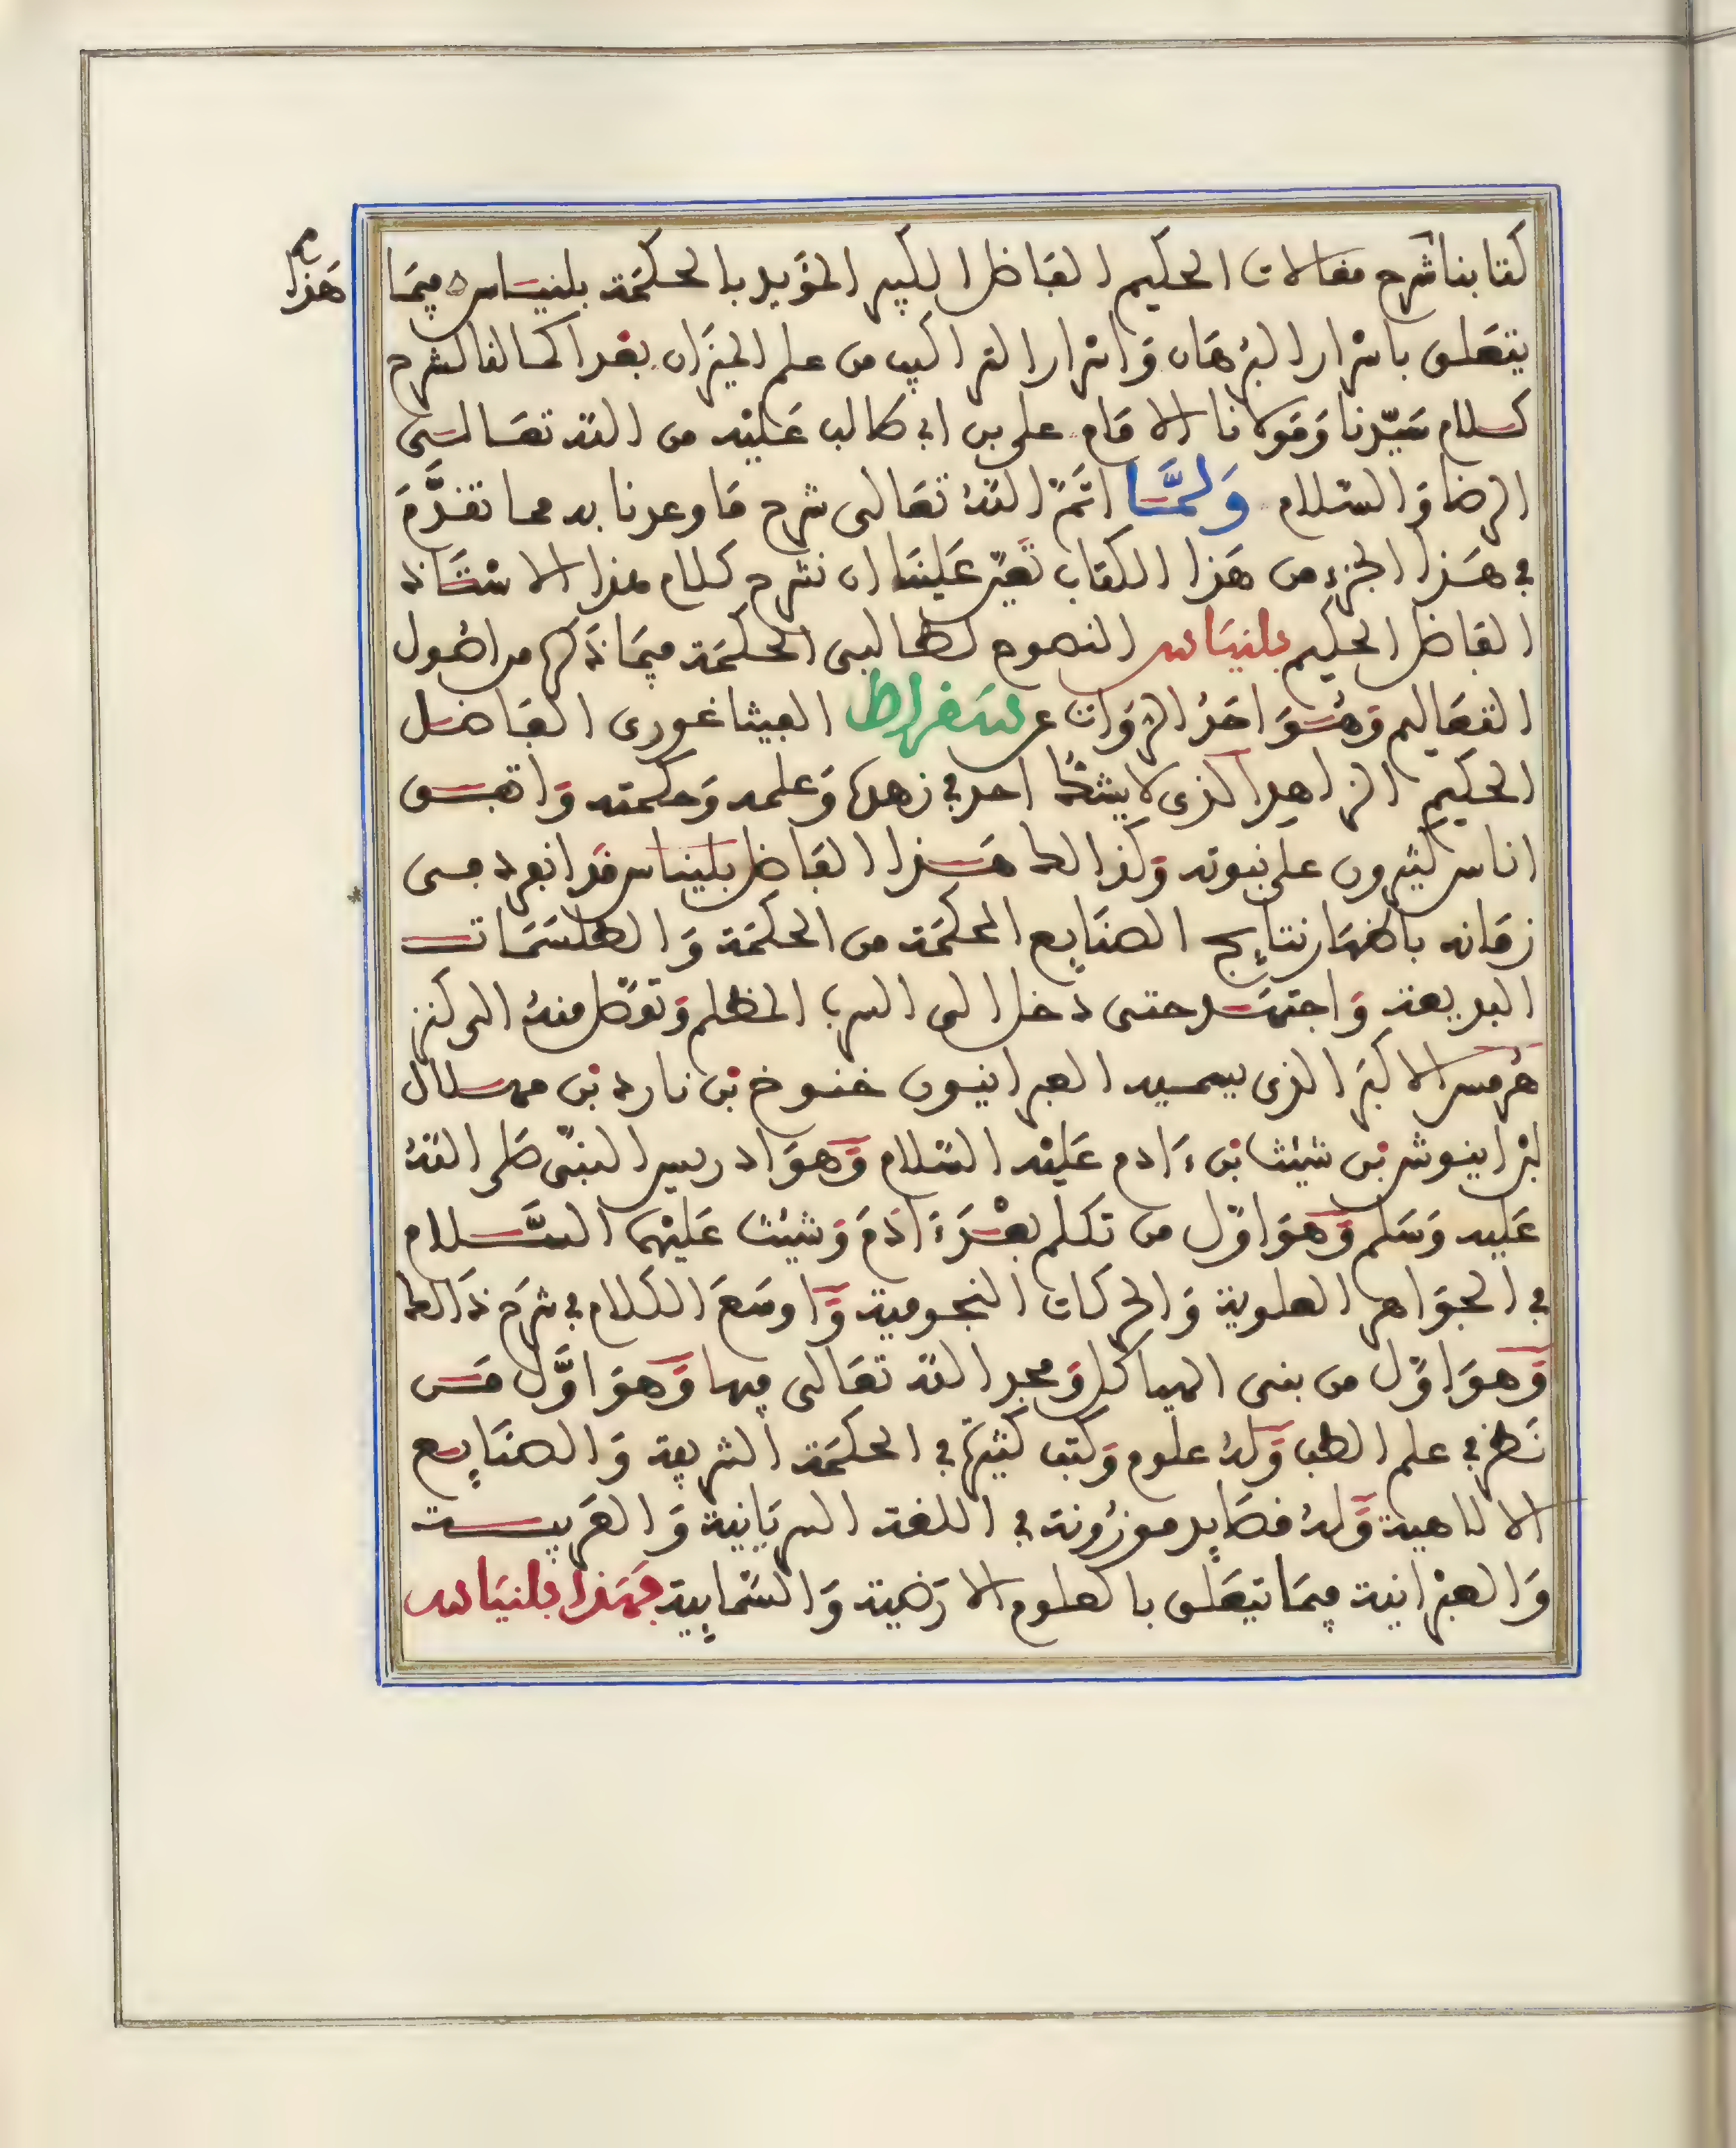 هذا
كتابنا شرح مقالات الحكيم الفاضل الكبير المؤيد بالحكمة بلنياس فيما
يتعلق باسرار البرهان واسرار التراكيب من علم الميزان بعد اكمالنا لشرح
كلام سيدنا ومولانا الامام علي بن ابي طالب عليه من الله تعالى
الرضا والسلام ولما اتم الله تعالى شرح ما وعدنا به مما تقدم
في هذا الجزء من هذا الكتاب تعين علينا ان نشرح كلام هذا الاستاذ
الفاضل الحكيم بلنياس النصوح لطالبي الحكمة فيما ذكره من اصول
التعاليم وهو احد الرواة عن سقراط الفيثاغوري الفاضل
الحكيم الزاهد الذي لا يشك احد في زهده وعلمه وحكمته واتفق
اناس كثيرون على نبوته وكذالك هذا الفاضل بلنياس قد انفرد في
زمانه باظهار نتايج الصنايع المحكمة من الحكمة والطلسمات
البديعة واجتهد حتى دخل الى السرب المظلم وتوصل منه الى كنز
هرمس الاكبر الذي يسميه العبرانيون خنوخ بن يارد بن مهلال
ابن اينوش بن شيث بن ءادم عليه السلام وهو ادريس النبي صلى الله
عليه وسلم وهو اول من تكلم بعد ءادم وشيث عليهما السلام
في الجواهر العلوية والحركات النجومية واوسع الكلام في شرح ذالك
وهو اول من بنى الهياكل ومجد الله تعالى فيها وهو اول من
نظر في علم الطب وله علوم وكتب كثيرة في الحكمة الشريفة والصنايع
الالاهية وله قصايد موزونة في اللغة السريانية والعربية
والعبرانية فيما تيعلق بالعلوم الارضية والسمايية فهذا بلنياس